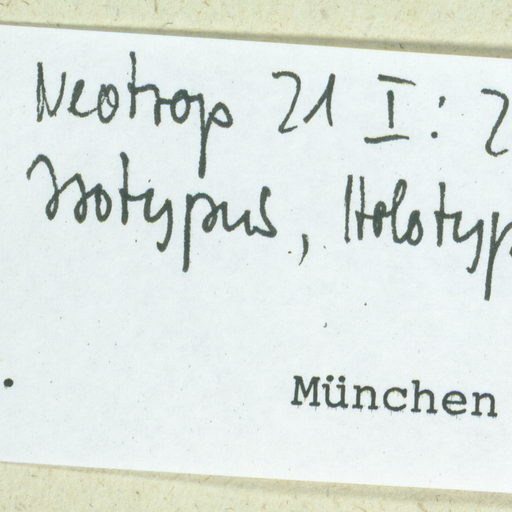 Neotrop 21 I: 2
Isotypus, Holotyp
München